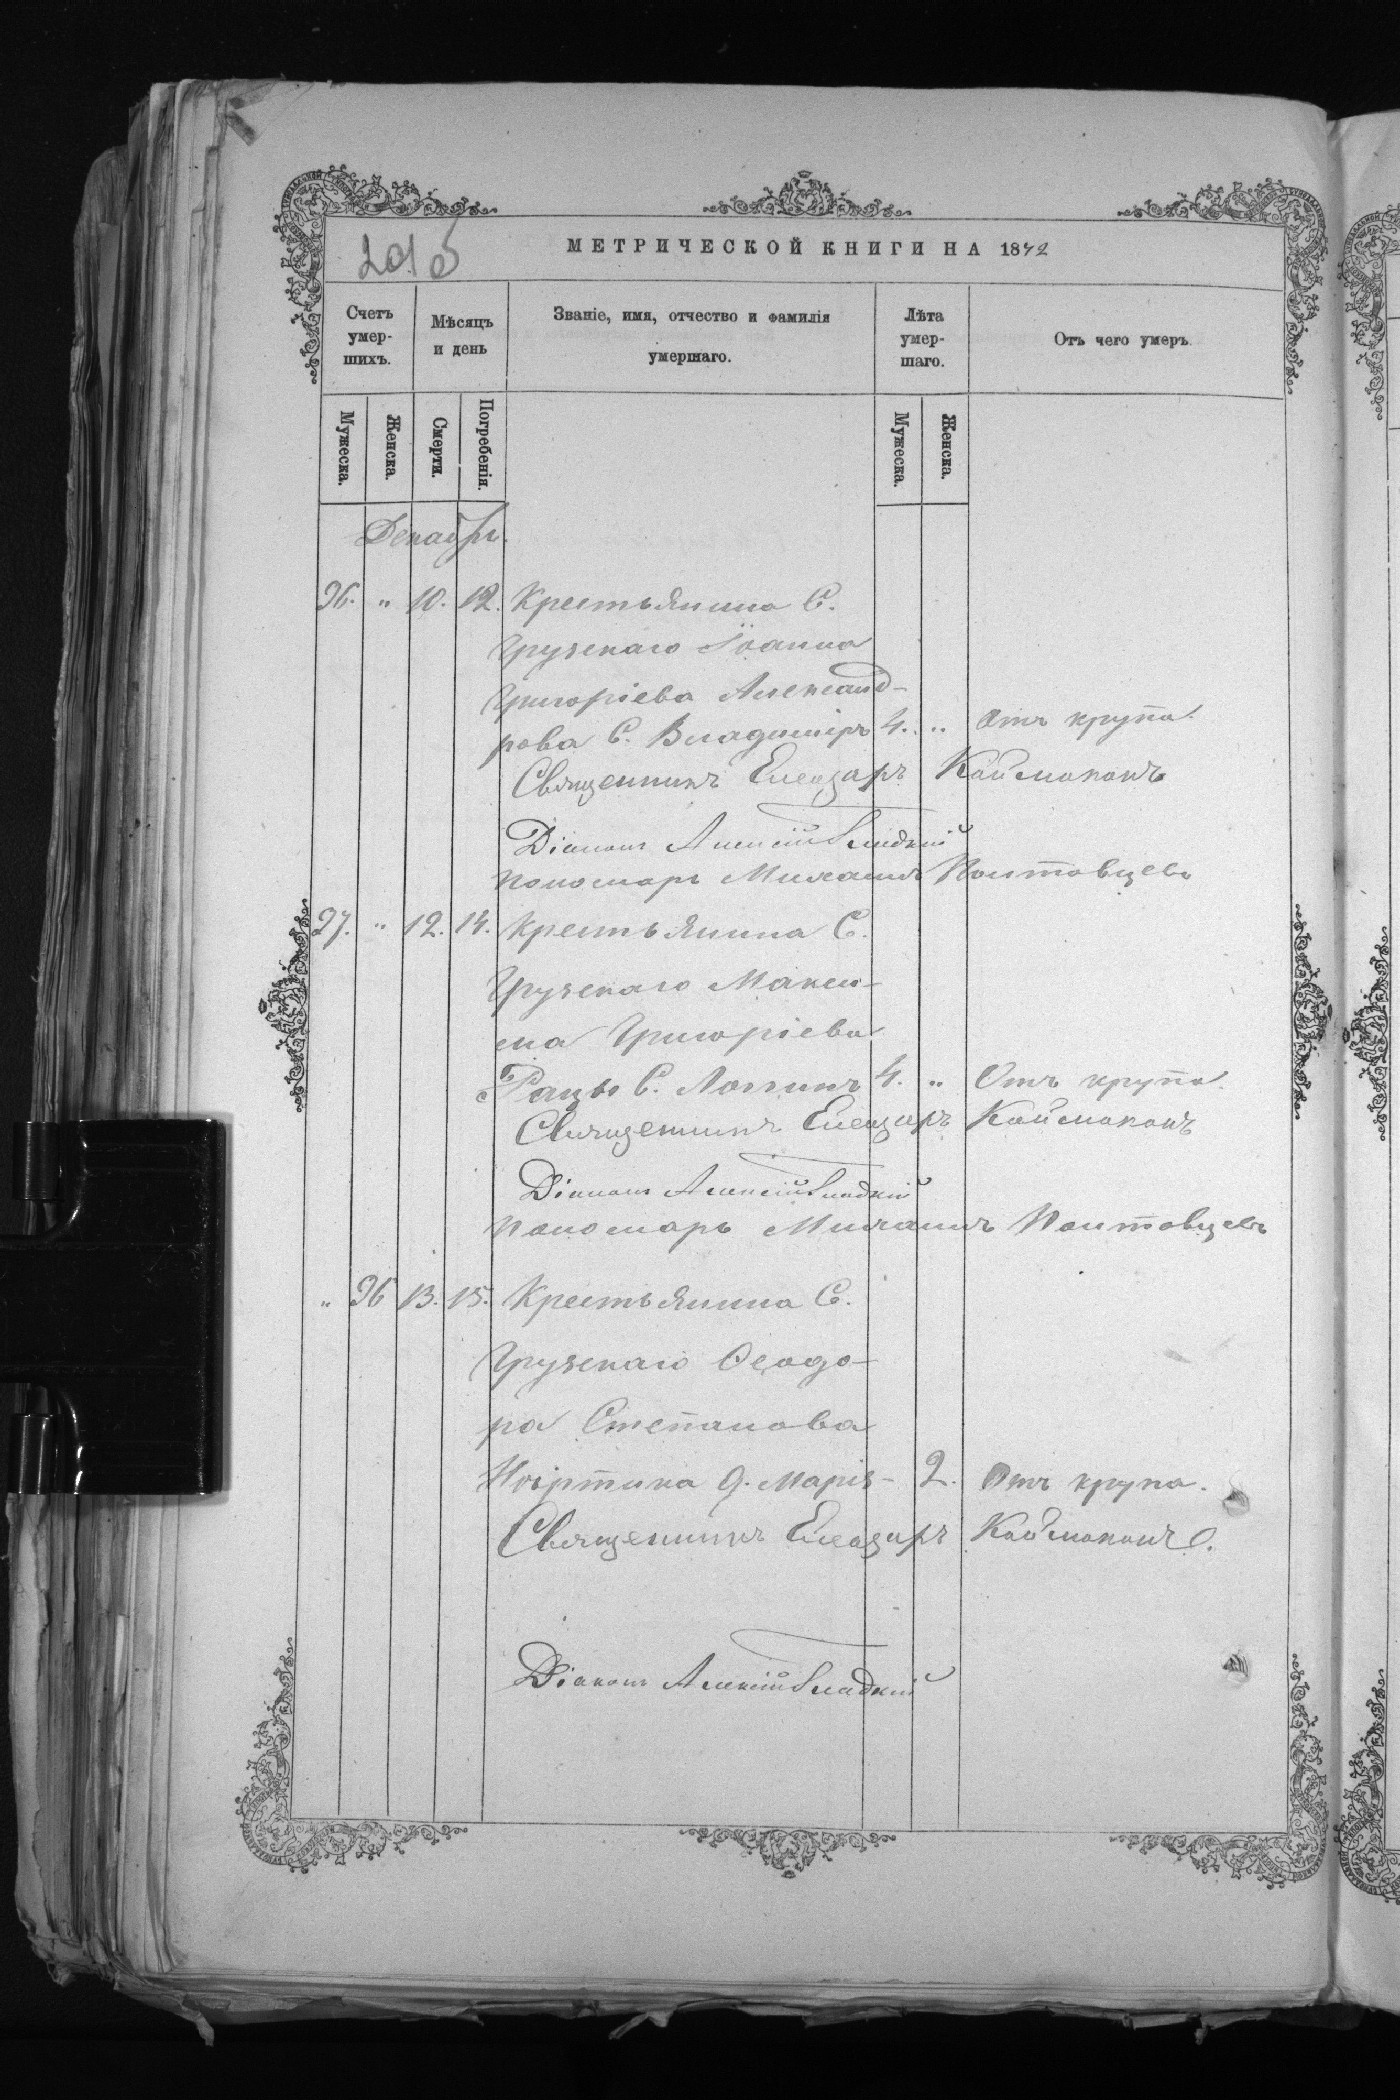 МЕТРИЧЕСКОЙ КНИГИ НА 1872
Счетъ умер- шихъ.
Мѣсяцъ и день
Званіе, имя, отчество и фамилія умершаго.
Лѣта умер- шаго.
Отъ чего умеръ
Мужеска. Женска. Смерти. Погребенія. Мужеска. Женска.
Декабрь.
36. " 10. 12. Крестьянина С.
Грузскаго Іоанна
Григоріева Александ-
рова С. Владиміръ 4. " Отъ крупа.
Священникъ Елеазаръ Каймаканъ
Діаконъ Алексій Гладкій
Пономарь Михаилъ Полтовцевъ
37. " 12. 14. Крестьянина С.
Грузскаго Макси-
ма Григоріева
Рацы С. Логгинъ 4. " Отъ крупа.
Священникъ Елеазаръ Каймаканъ
Діаконъ Алексій Гладкій
Пономарь Михаилъ Полтовцевъ
" 36 13. 15. Крестьянина С.
Грузскаго Ѳеодо-
ра Степанова
Д. Марія - 2. Отъ крупа.
Священникъ Елеазаръ Каймаканъ.
Діаконъ Алексій Гладкій